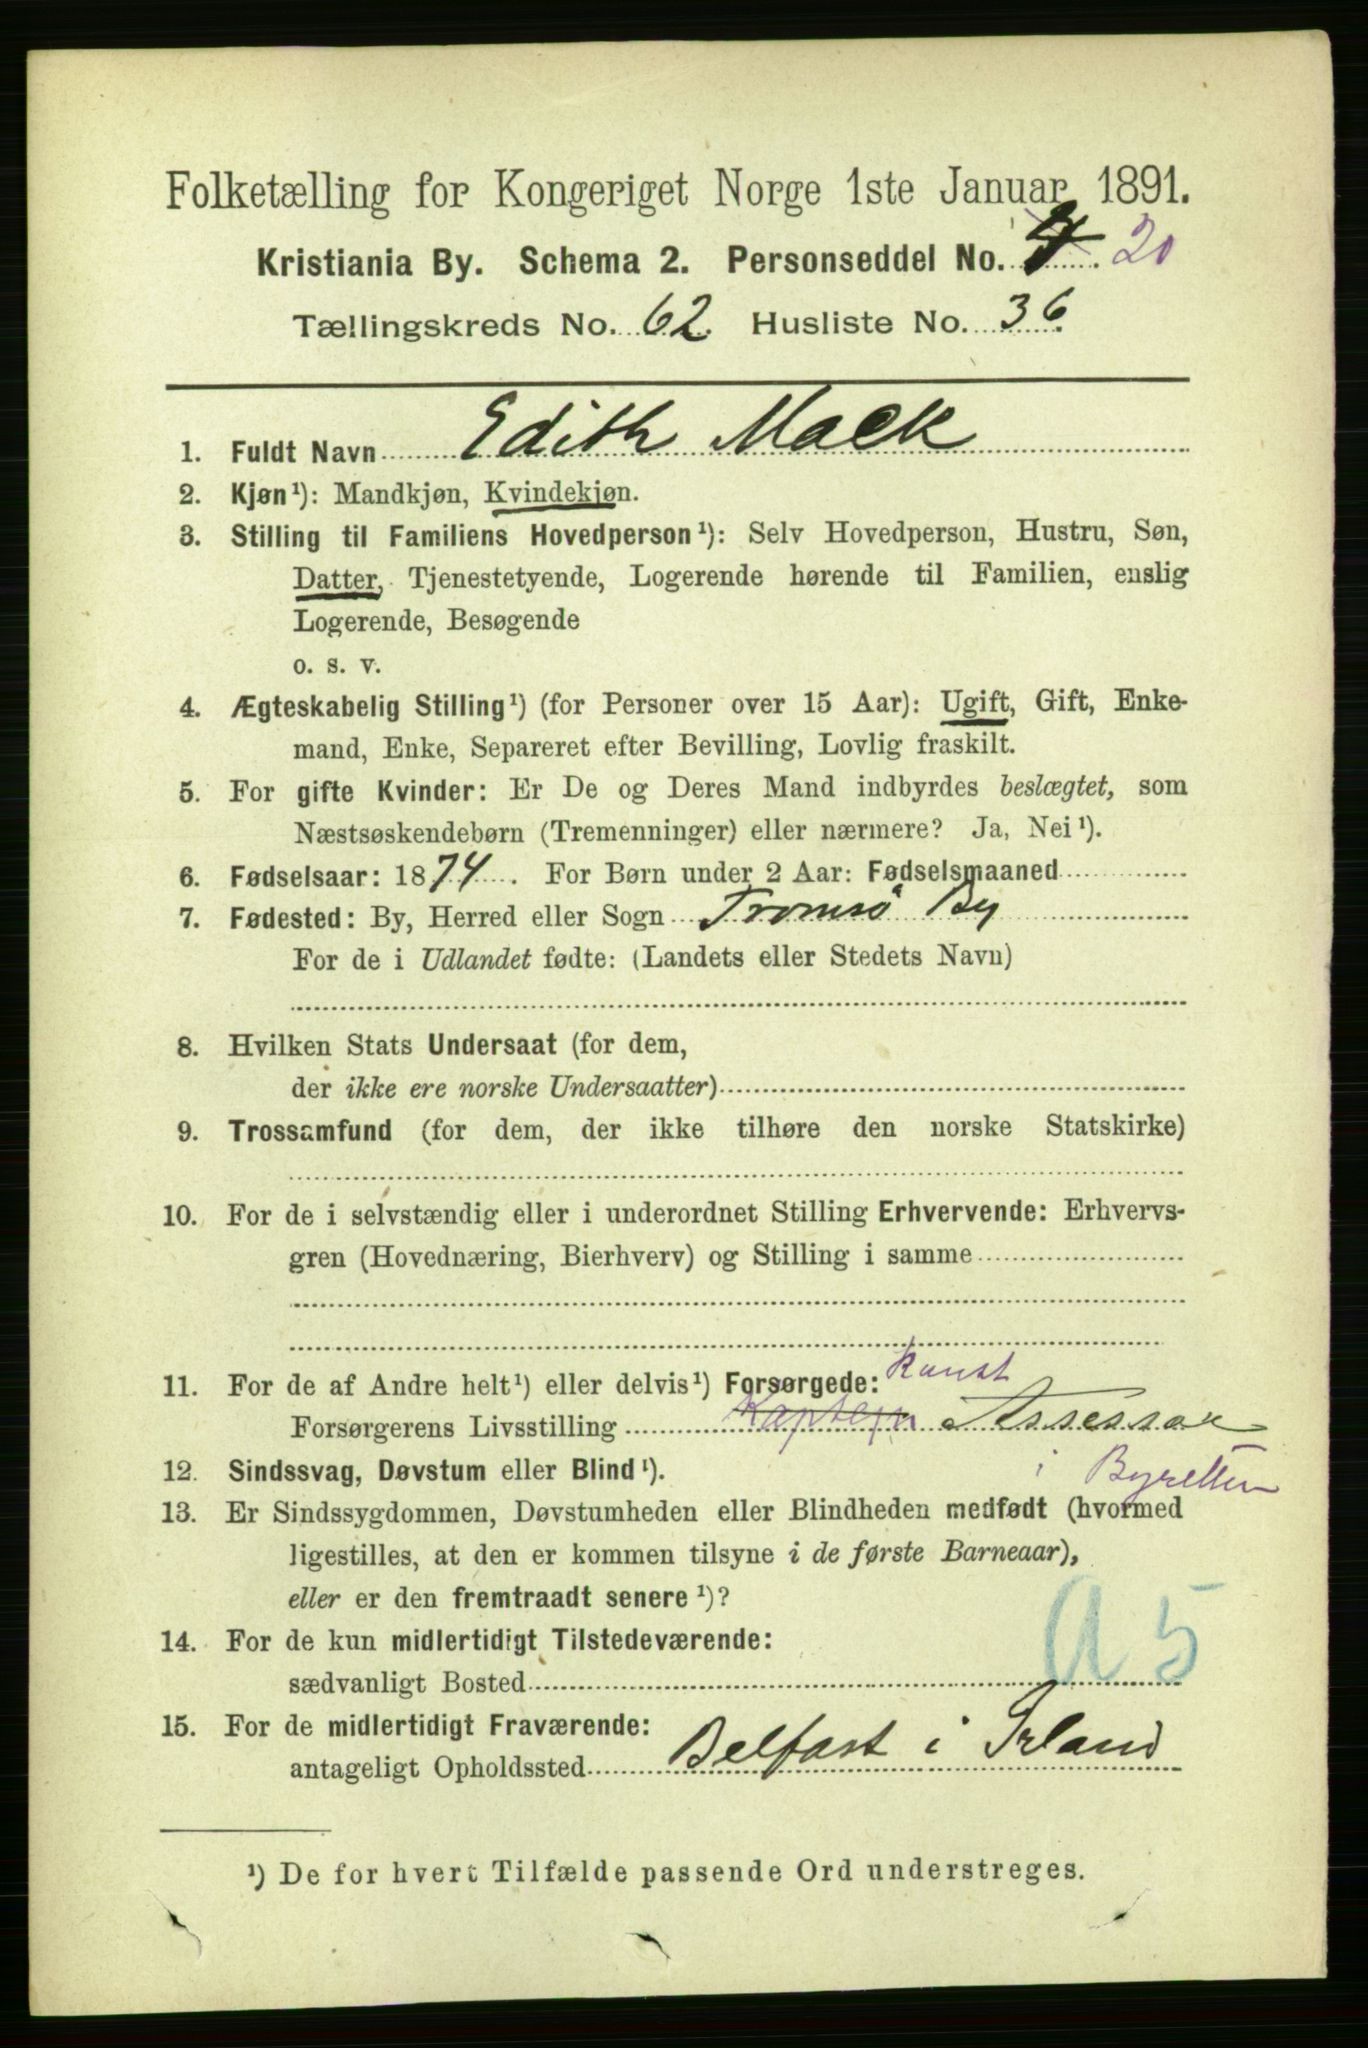 Folketælling for Kongeriget Norge 1ste Januar 1891.
Kristiania By. Schema 2. Personseddel No. 20
Tællingskreds No. 62. Husliste No. 36.
1. Fuldt Navn Edith Mack
2. Kjøn¹): Mandkjøn, Kvindekjøn.
3. Stilling til Familiens Hovedperson¹): Selv Hovedperson, Hustru, Søn,
Datter, Tjenestetyende, Logerende hørende til Familien, enslig
Logerende, Besøgende
o. s. v.
4. Ægteskabelig Stilling¹) (for Personer over 15 Aar): Ugift, Gift, Enke-
mand, Enke, Separeret efter Bevilling, Lovlig fraskilt.
5. For gifte Kvinder: Er De og Deres Mand indbyrdes beslægtet, som
Næstsøskendebørn (Tremenninger) eller nærmere? Ja, Nei¹).
6. Fødselsaar: 1874. For Børn under 2 Aar: Fødselsmaaned
7. Fødested: By, Herred eller Sogn Tromsø By
For de i Udlandet fødte: (Landets eller Stedets Navn)
8. Hvilken Stats Undersaat (for dem,
der ikke ere norske Undersaatter)
9. Trossamfund (for dem, der ikke tilhøre den norske Statskirke)
10. For de i selvstændig eller i underordnet Stilling Erhvervende: Erhvervs-
gren (Hovednæring, Bierhverv) og Stilling i samme
11. For de af Andre helt¹) eller delvis¹) Forsørgede: Kunst
Forsørgerens Livsstilling Kaptejn Assessor
12. Sindssvag, Døvstum eller Blind¹). i Byretten
13. Er Sindssygdommen, Døvstumheden eller Blindheden medfødt (hvormed
ligestilles, at den er kommen tilsyne i de første Barneaar),
eller er den fremtraadt senere¹)?
14. For de kun midlertidigt Tilstedeværende:
sædvanligt Bosted
a 5
15. For de midlertidigt Fraværende:
antageligt Opholdssted Belfast i Irland
¹) De for hvert Tilfælde passende Ord understreges.